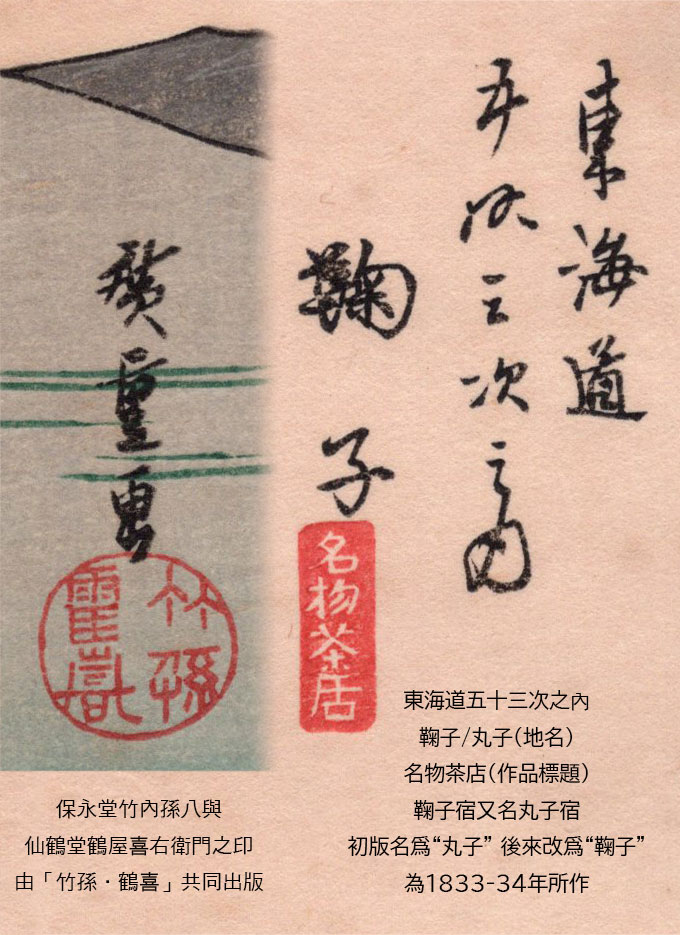 東海道
五拾三次之内
鞠子
名物茶店
廣重画
竹孫
東海道五十三次之內
鞠子/丸子(地名)
名物茶店(作品標題)
鞠子宿又名丸子宿
初版名爲“丸子” 後來改爲“鞠子”
為1833-34年所作
保永堂竹內孫八與
仙鶴堂鶴屋喜右衛門之印
由「竹孫・鶴喜」共同出版